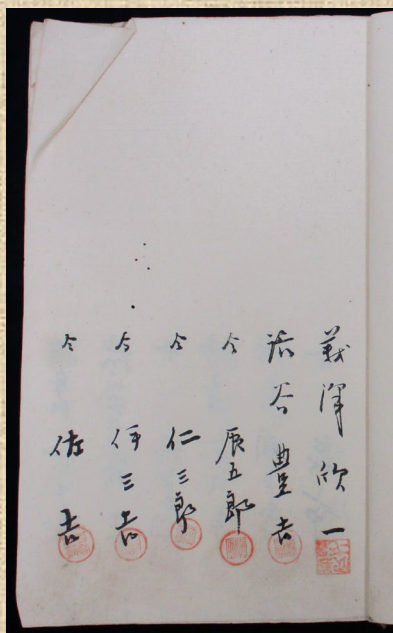 澤欣一
谷豊吉
仝 辰五郎
仝 仁三郎
仝 伊三吉
仝 佐吉